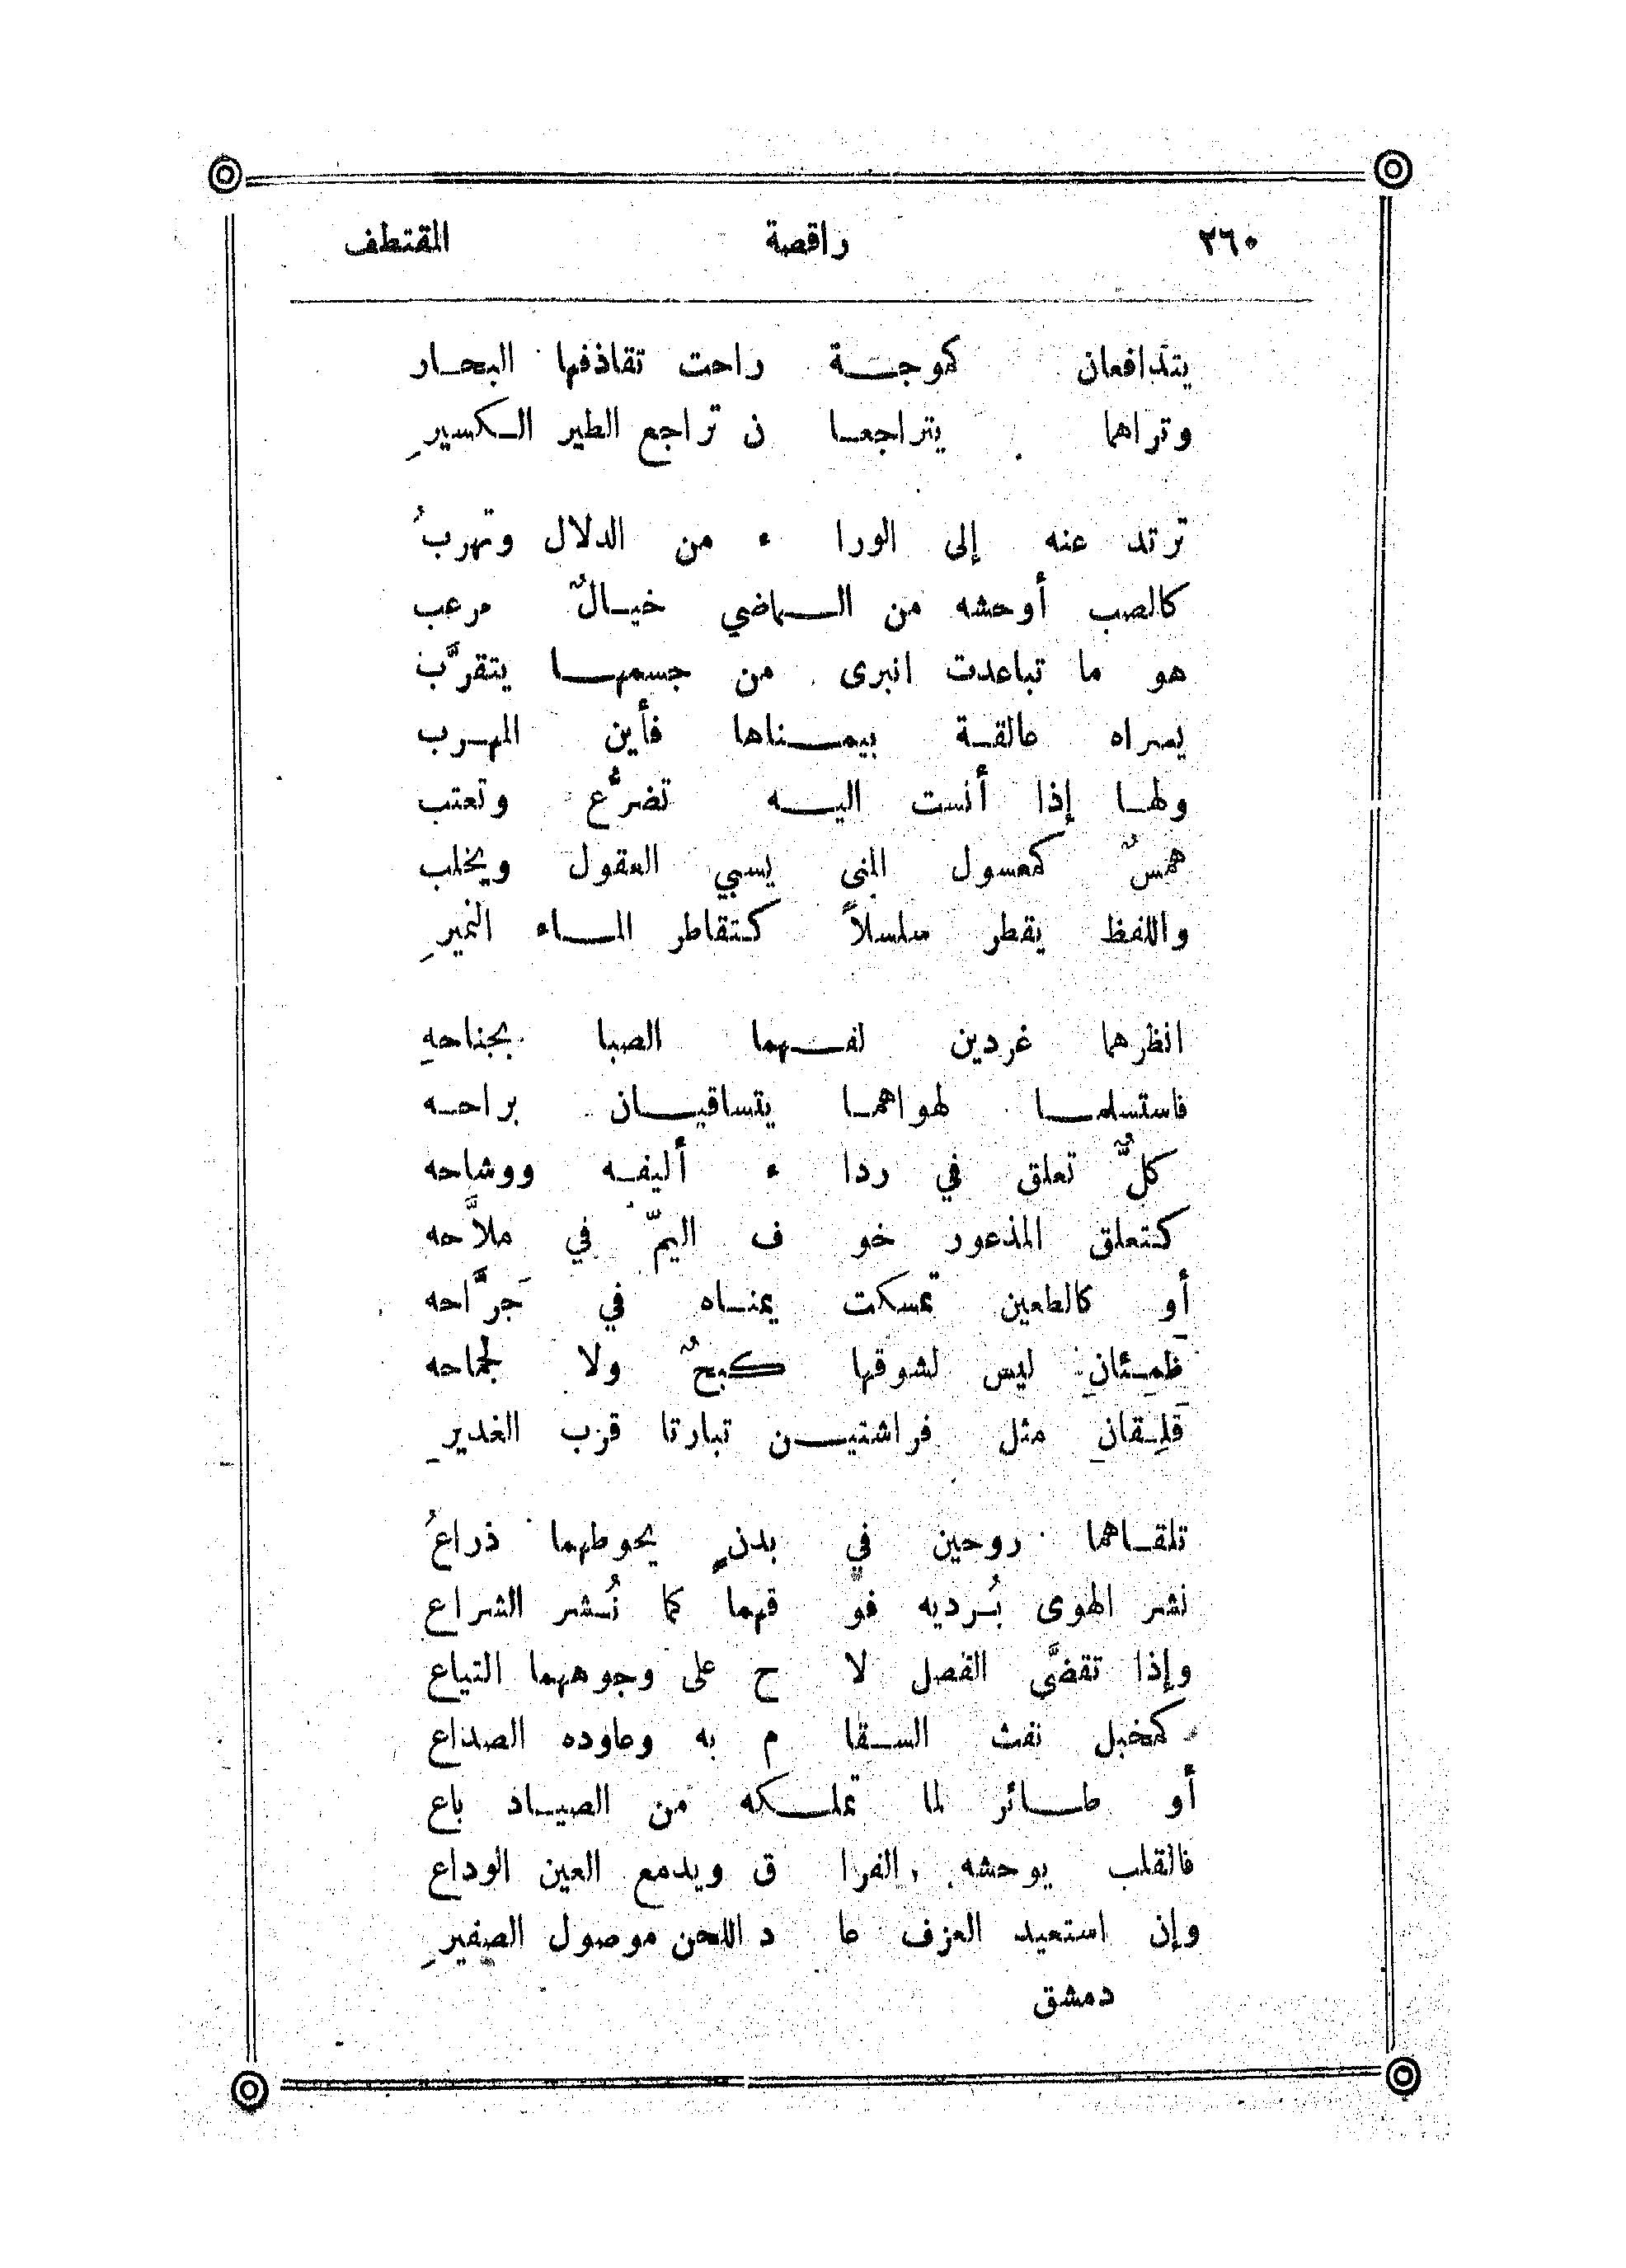 ٣٦٠ راقصة المقتطف
يتدافعان كموجة راحت تقاذفها البحار
وتراهما يتراجعا ن تراجع الطير الكسيرِ
ترتد عنه إلى الورا ء من الدلال وتهربُ
كالصب أوحشه من الماضي خيالٌ مرعب
هو ما تباعدت انبرى من جسمها يتقرَّب
يسراه عالقة بيمناها فأين المهرب
ولها إذا أنست اليه تضرُّع وتعتب
همسٌ كمعسول المنى يسبي العقول ويخلب
واللفظ يقطر سلسلاً كتقاطر الماء النميرِ
انظرهما غردين لفهما الصبا بجناحهِ
فاستسلما لهواهما يتساقيان براحه
كلٌّ تعلق في ردا ء أليفه ووشاحه
كتعلق المذعور خو ف اليمّ في ملاَّحه
أو كالطعين تمسكت يمناه في جَرَّاحه
ظَمِئانِ ليس لشوقها كبحٌ ولا لجماحه
قَلِقانِ مثل فراشتين تبارتا قرب الغديرِ
تلقاهما روحين في بدنٍ يحوطهما ذراعُ
نشر الهوى بُرديه فو قهما كما نُشر الشراع
وإذا تقضَّى الفصل لا ح على وجوههما التياع
كمخبل نفث السقا م به وعاوده الصداع
أو طائر لما تملكه من الصياد باع
فالقلب يوحشه الفرا ق ويدمع العين الوداع
وإن استعيد العزف عا د اللحن موصول الصفيرِ
دمشق